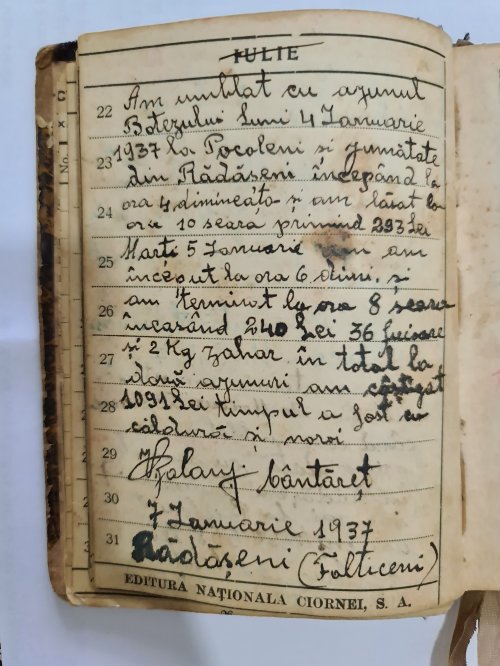 IULIE
22 Am umblat cu ajunul
Botezului Luni 4 Ianuarie
23 1937 la Pocoleni si jumătate
din Rădăseni începând la
24 ora 4 dimineața și am lăsat la
ora 10 seara primind 293 Lei
25 Marti 5 Ianuarie am
început la ora 6 dimi. și
26 am terminat la ora 8 seara
încasând 240 Lei 36 fuioare
27 și 2 Kg zahar în total la
două ajunuri am câștigat
28 1091 Lei timpul a fost cu
căldură și noroi
29 cântăreț
30
7 Ianuarie 1937
31 Rădășeni (Falticeni)
EDITURA NAȚIONALA CIORNEI, S. A.
C
No.